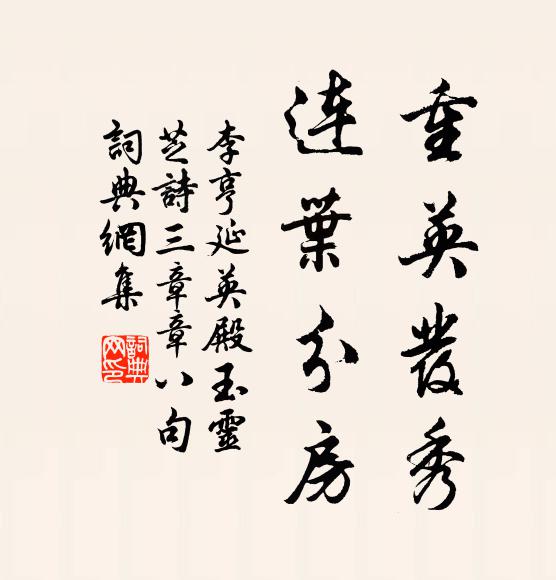 重英發秀
連葉分房
李亨延英殿玉靈
芝詩三章章八句
詞典網集
詞典网印